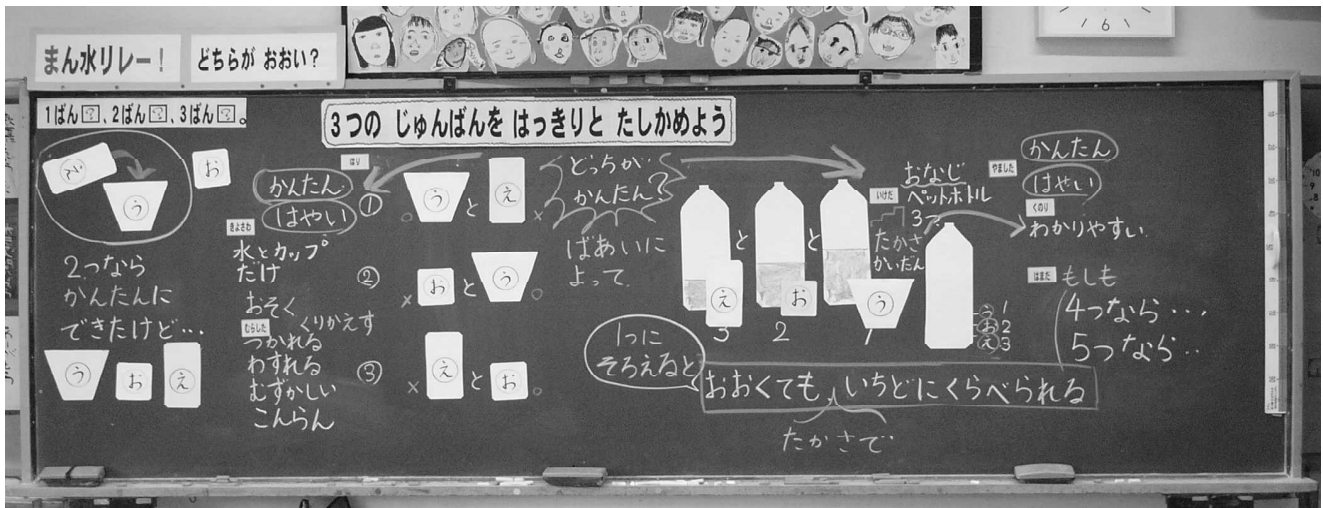 まん水リレー!
どちらが おおい?
6
1ばん?、2ばん?、3ばん?。
3つの じゅんばんを はっきりと たしかめよう
う
お
2つなら
かんたんに
できたけど…
う
お
え
はり
かんたん
はやい
きよさわ
水とカップ
だけ
おそく
むらした
くりかえす
つかれる
わすれる
むずかしい
こんらん
①
う と え
②
お と う
③
え と お
どっちが
かんたん?
ばあいに
よって
と
と
え
お
う
3
2
1
いけだ
おなじ
ペットボトル
3つ
たかさ
かいだん
う 1
お 2
え 3
やました
かんたん
はやい
くのり
わかりやすい
はまだ
もしも
4つなら…
5つなら‥
1つに
そろえると
おおくても、いちどにくらべられる
たかさで